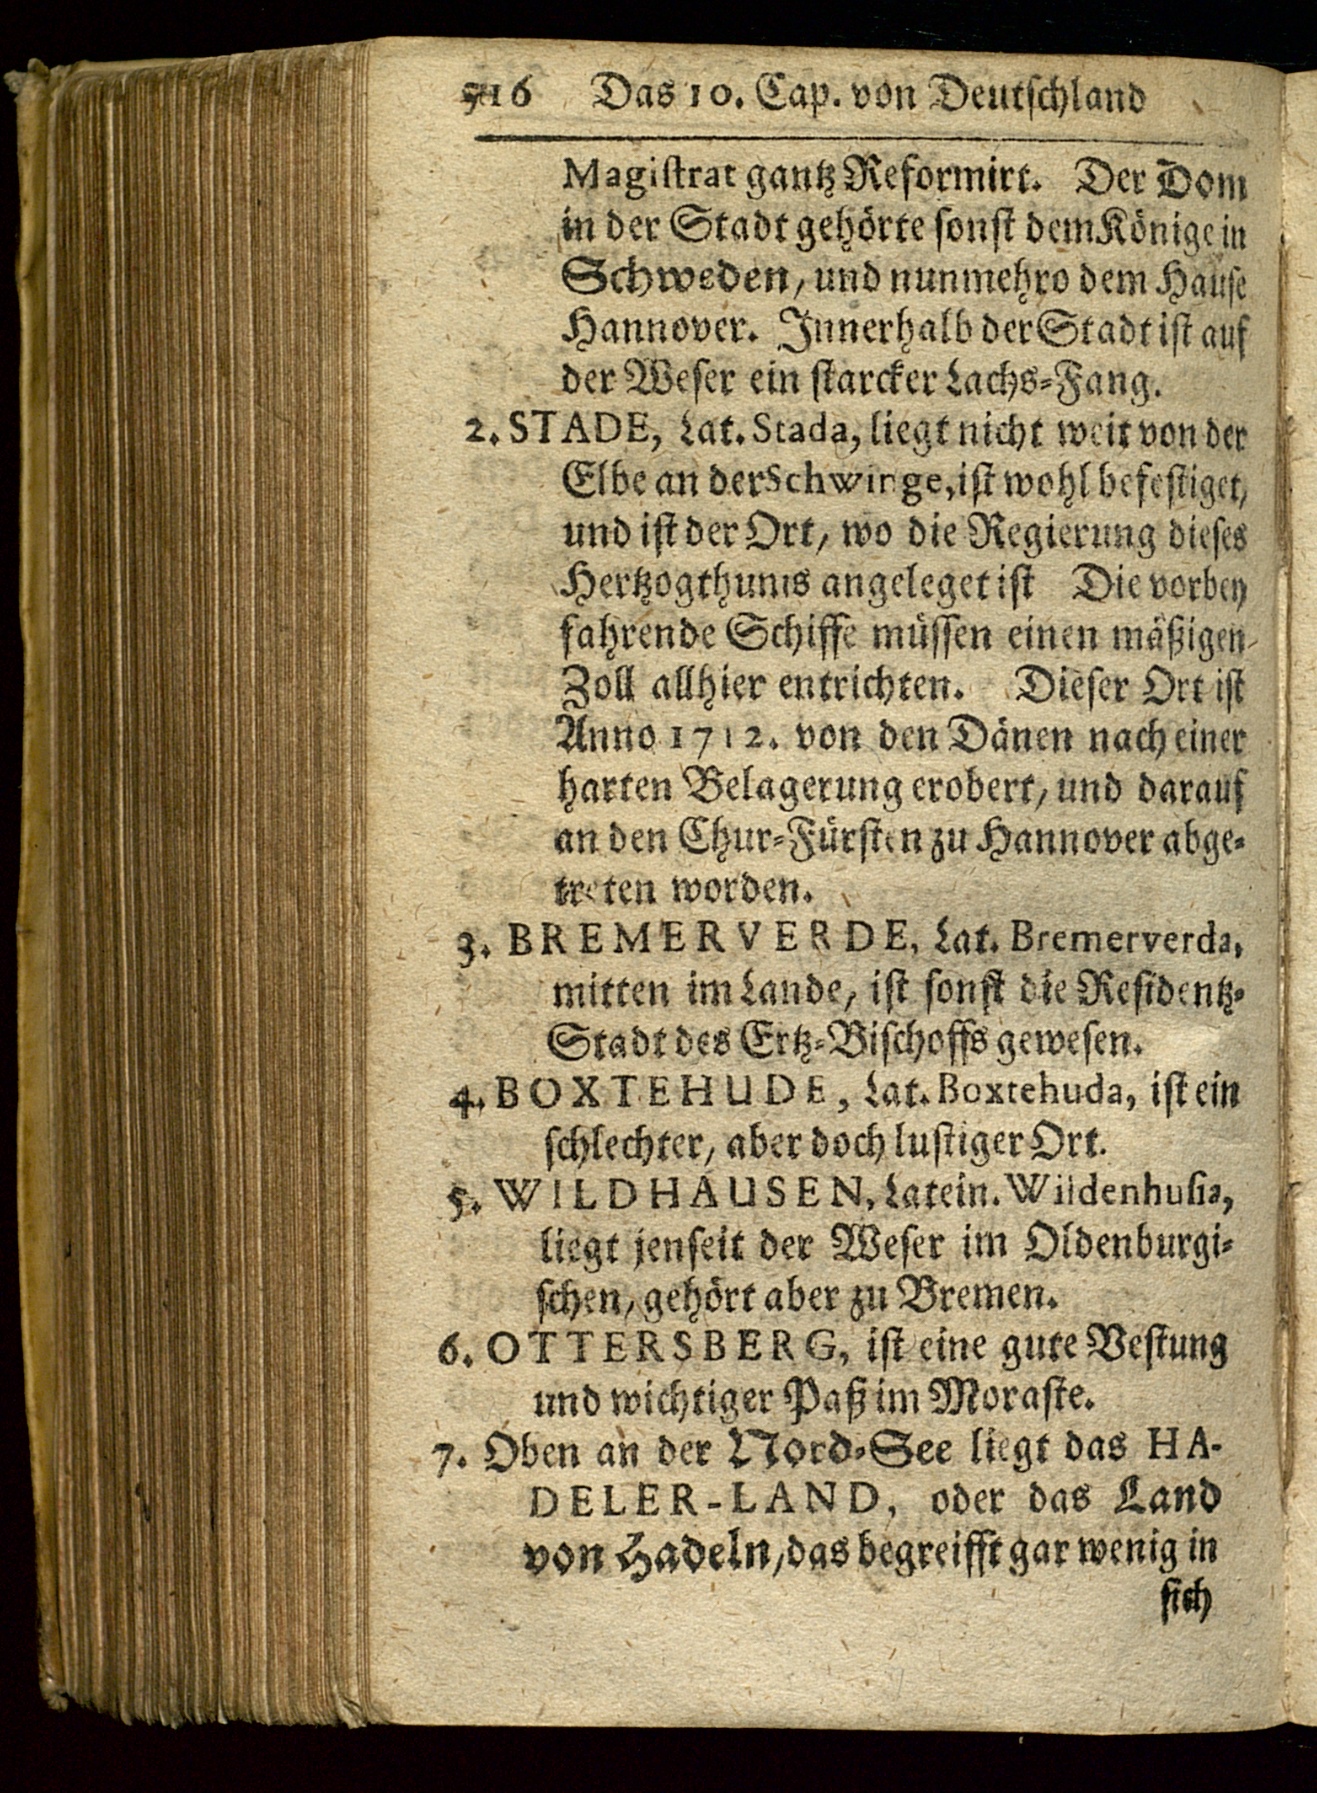 516 Das 10. Cap. von Deutschland
Magistrat gantz Reformirt. Der Dom
in der Stadt gehörte sonst dem Könige in
Schweden, und nunmehro dem Hause
Hannover. Innerhalb der Stadt ist auf
der Weser ein starcker Lachs-Fang.
2. STADE, Lat. Stada, liegt nicht weit von der
Elbe an der Schwinge, ist wohl befestiget,
und ist der Ort, wo die Regierung dieses
Hertzogthums angeleget ist Die vorbey
fahrende Schiffe müssen einen mäßigen
Zoll allhier entrichten. Dieser Ort ist
Anno 1712. von den Dänen nach einer
harten Belagerung erobert, und darauf
an den Chur-Fürsten zu Hannover abge-
treten worden.
3. BREMERVERDE, Lat. Bremerverda,
mitten im Lande, ist sonst die Residentz-
Stadt des Ertz-Bischoffs gewesen.
4. BOXTEHUDE, Lat. Boxtehuda, ist ein
schlechter, aber doch lustiger Ort.
5. WILDHAUSEN, Latein. Wildenhusia,
liegt jenseit der Weser im Oldenburgi-
schen, gehört aber zu Bremen.
6. OTTERSBERG, ist eine gute Vestung
und wichtiger Paß im Moraste.
7. Oben an der Nord-See liegt das HA-
DELER-LAND, oder das Land
von Hadeln, das begreifft gar wenig in
sich